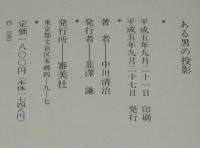 ある男の投影
平成五年九月二十一日 印刷
平成五年九月二十七日 発行
著者――中川清治
発行者――韮澤 謙
発行所――審美社
東京都文京区本郷四‐九‐七
定価一八〇〇円(本体一七四八円)
© 1993